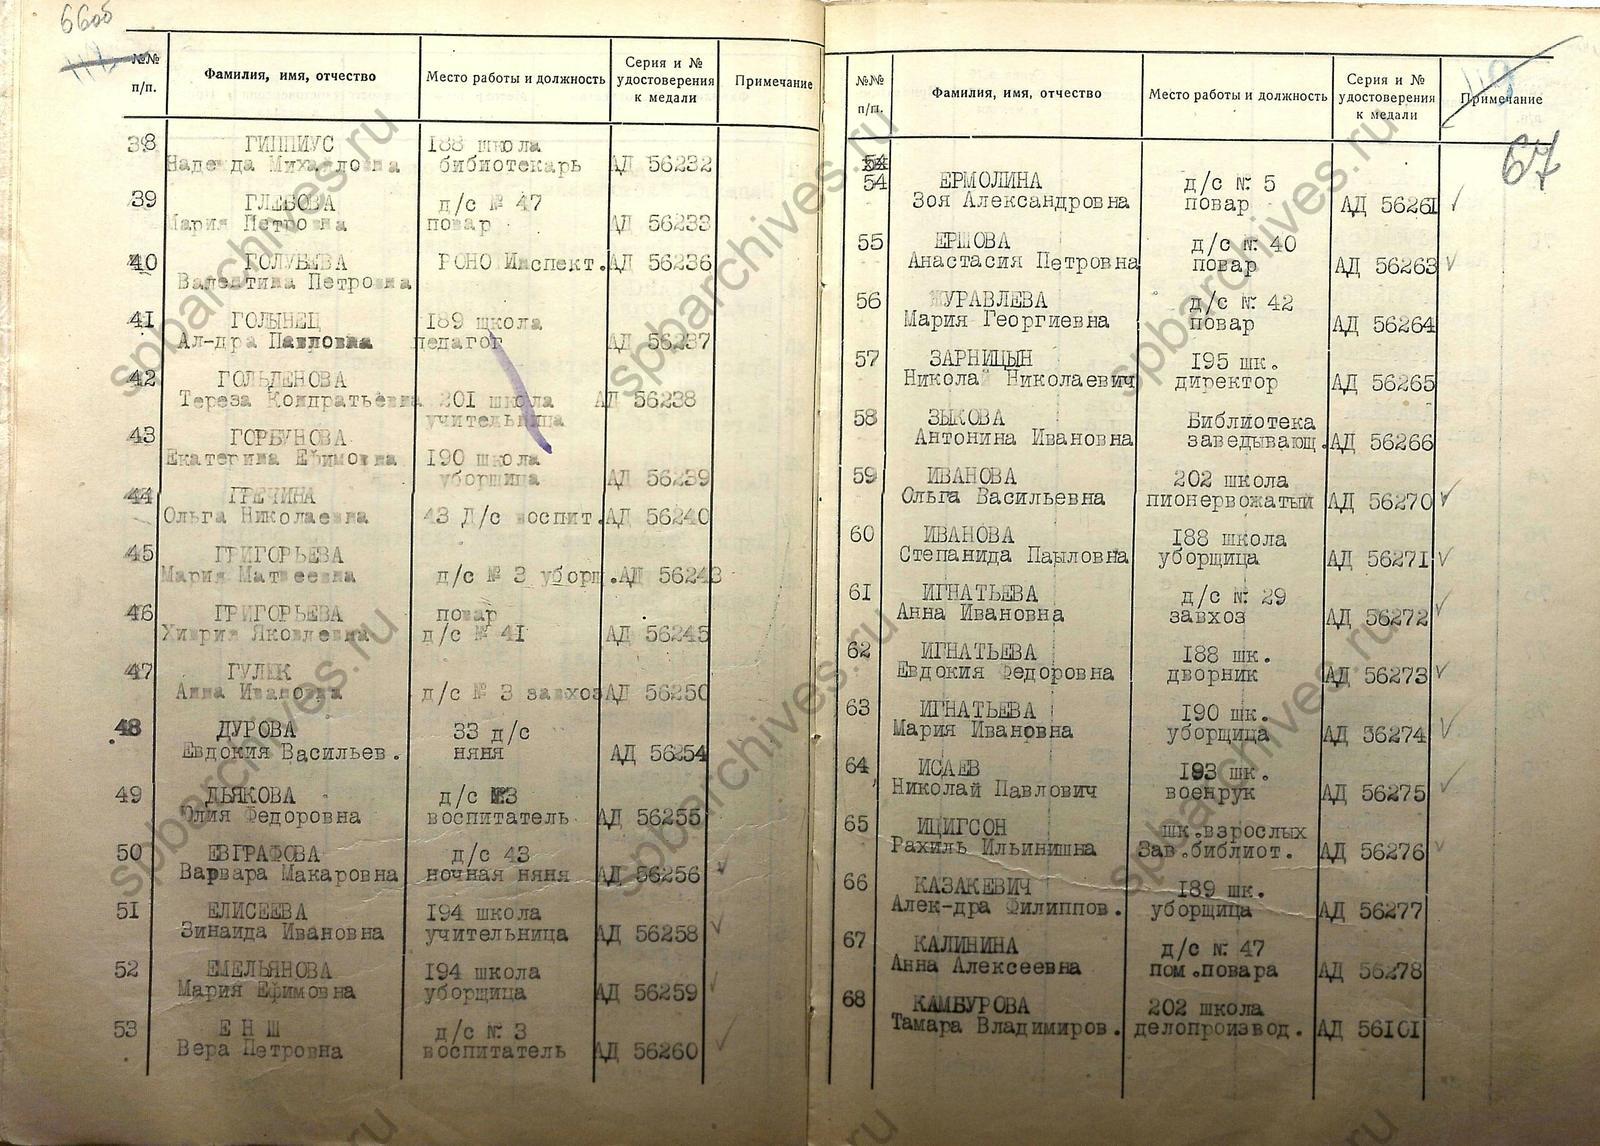 66об
№№ п/п.
Фамилия, имя, отчество
Место работы и должность
Серия и № удостоверения к медали
Примечание
38 ГИППИУС 188 школа
Надежда Михайловна библиотекарь АД 56232
39 ГЛЕБОВА д/с № 47
Мария Петровна повар АД 56233
40 ГОЛУБЕВА РОНО Инспект. АД 56236
Валентина Петровна
41 ГОЛЫНЕЦ 189 школа
Ал-дра Павловна педагог АД 56237
42 ГОЛЬДЕНОВА
Тереза Кондратьевна 201 школа АД 56238
учительница
43 ГОРБУНОВА
Екатерина Ефимовна 190 школа
уборщица АД 56239
44 ГРЕЧИНА
Ольга Николаевна 43 Д/с воспит. АД 56240
45 ГРИГОРЬЕВА
Мария Матвеевна д/с № 3 уборщ. АД 56243
46 ГРИГОРЬЕВА повар
Хиврия Яковлевна д/с № 41 АД 56245
47 ГУЛЕК
Анна Ивановна д/с № 3 завхоз АД 56250
48 ДУРОВА 33 д/с
Евдокия Васильев. няня АД 56254
49 ДЬЯКОВА д/с №3
Юлия Федоровна воспитатель АД 56255
50 ЕВГРАФОВА д/с 43
Варвара Макаровна ночная няня АД 56256
51 ЕЛИСЕЕВА 194 школа
Зинаида Ивановна учительница АД 56258
52 ЕМЕЛЬЯНОВА 194 школа
Мария Ефимовна уборщица АД 56259
53 Е Н Ш д/с № 3
Вера Петровна воспитатель АД 56260
№№ п/п.
Фамилия, имя, отчество
Место работы и должность
Серия и № удостоверения к медали
Примечание
67
54
54 ЕРМОЛИНА д/с № 5
Зоя Александровна повар АД 56261
55 ЕРШОВА д/с № 40
Анастасия Петровна повар АД 56263
56 ЖУРАВЛЕВА д/с № 42
Мария Георгиевна повар АД 56264
57 ЗАРНИЦЫН 195 шк.
Николай Николаевич директор АД 56265
58 ЗЫКОВА Библиотека
Антонина Ивановна заведывающ. АД 56266
59 ИВАНОВА 202 школа
Ольга Васильевна пионервожатый АД 56270
60 ИВАНОВА 188 школа
Степанида Паыловна уборщица АД 56271
61 ИГНАТЬЕВА д/с № 29
Анна Ивановна завхоз АД 56272
62 ИГНАТЬЕВА 188 шк.
Евдокия Федоровна дворник АД 56273
63 ИГНАТЬЕВА 190 шк.
Мария Ивановна уборщица АД 56274
64 ИСАЕВ 193 шк.
Николай Павлович военрук АД 56275
65 ИЦИГСОН шк.взрослых
Рахиль Ильинишна Зав.библиот. АД 56276
66 КАЗАКЕВИЧ 189 шк.
Алек-дра Филиппов. уборщица АД 56277
67 КАЛИНИНА д/с № 47
Анна Алексеевна пом.повара АД 56278
68 КАМБУРОВА 202 школа
Тамара Владимиров. делопроизвод. АД 56101
spbarchives.ru